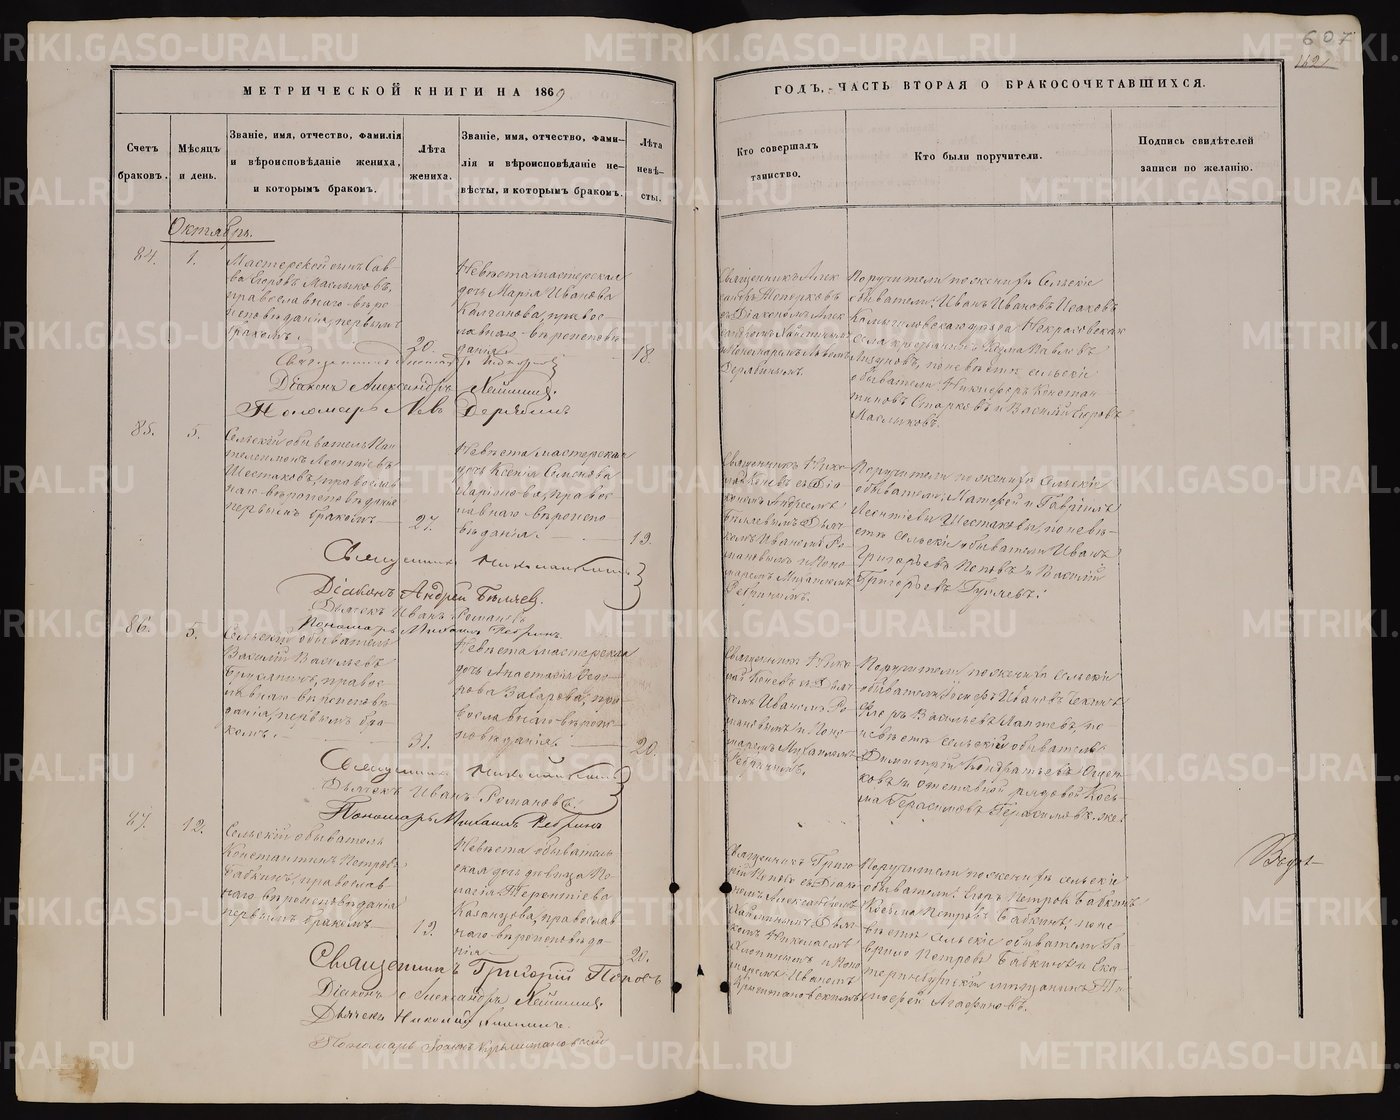 607
421
МЕТРИЧЕСКОЙ КНИГИ НА 1869
ГОДЪ, ЧАСТЬ ВТОРАЯ О БРАКОСОЧЕТАВШИХСЯ.
Счетъ браковъ.
Мѣсяцъ и день.
Званіе, имя, отчество, фамилія
и вѣроисповѣданіе жениха,
и которымъ бракомъ.
Лѣта
жениха.
Званіе, имя, отчество, фами-
лія и вѣроисповѣданіе не-
вѣсты, и которымъ бракомъ.
Лѣта
невѣ-
сты.
Кто совершалъ
таинство.
Кто были поручители.
Подпись свидѣтелей
записи по желанію.
Октябрь.
84.
1.
Мастерской сынъ Сав-
ва Егоровъ Маслыковъ,
православнаго вѣро-
исповѣданія, первымъ
бракомъ.
20.
Невѣста мастерская
дочь Марія Иванова
Калганова, правос-
лавнаго вѣроисповѣ-
данія.
18.
Священникъ Алек-
сандръ Топорковъ
съ Діакономъ Алек-
Пономаремъ Львомъ
Дерябинымъ.
Поручители по женихѣ сельскіе
обыватели: Иванъ Ивановъ Исаковъ
Камышловскаго уѣзда Некрасовская
села крестьянинъ Козма Павловъ
по невѣстѣ сельскіе
обыватели Никифоръ Констан-
тиновъ Старковъ и Василій Егоровъ
Маслыковъ.
Діаконъ Александръ
Пономарь Левъ Дерябинъ
85.
5.
Сельскій обыватель Пан-
телеимонъ Леонтіевъ
Шестаковъ, православ-
наго вѣроисповѣданія
первымъ бракомъ
27.
Невѣста мастерская
дочь Ксенія Симонова
Ларіонова, правос-
лавнаго вѣроиспо-
вѣданія.
19.
Священникъ Нико-
лай Коневъ съ Діа-
кономъ Андреемъ
Бѣляевымъ Дьяч-
комъ Иваномъ Ро-
мановымъ и Поно-
маремъ Михаиломъ
Ребринымъ.
Поручители по женихѣ сельскіе
обыватели: и Гавріилъ
Леонтіевы Шестаковы, по невѣ-
стѣ сельскіе обыватели Иванъ
Григорьевъ Поповъ и Василій
Григорьевъ Гуляевъ.
Священникъ Николай Коневъ
Діаконъ Андрей Бѣляев
Дьячекъ Иванъ Романовъ
Пономарь Михаилъ Ребринъ.
86.
5.
Сельскій обыватель
Василій Васильевъ
правос-
лавнаго вѣроисповѣ-
данія, первымъ бра-
комъ.
31.
Невѣста мастерская
дочь Анастасія Федо-
рова Захарова, пра-
вославнаго вѣрои-
сповѣданія.
20.
Священникъ Нико-
лай Коневъ съ Дьяч-
комъ Иваномъ Ро-
мановымъ и Поно-
маремъ Михаиломъ
Ребринымъ.
Поручители по женихѣ сельскіе
обыватели: Ивановъ
Васильевъ Лаптевъ, по
невѣстѣ сельскій обыватель
Димитрій Кондратьевъ
и отставной рядовой Кось-
ма Герасимовъ
Священникъ Николай Коневъ
Дьячекъ Иванъ Романовъ.
Пономарь Михаилъ Ребринъ
87.
12.
Сельскій обыватель
Константинъ Петровъ
Бабкинъ, православ-
наго вѣроисповѣданія
первымъ бракомъ
19.
Невѣста обыватель-
ская дочь дѣвица
Терентіева
Казанцова, православ-
наго вѣроисповѣда-
нія
20.
Священникъ Григо-
рій Поповъ съ Діако-
номъ Александромъ
Дьяч-
комъ Николаемъ
и Поно-
маремъ Иваномъ
Поручители по женихѣ сельскіе
обыватели: Егоръ Петровъ Бабкинъ
Козьма Петровъ Бабкинъ, по не-
вѣстѣ сельскіе обыватели Га-
врило Петровъ Бабкинъ и Ека-
теринбургскій мѣщанинъ Ти-
мофей Агафоновъ.
Священникъ Григорій Поповъ
Діаконъ Александръ
Дьячекъ Николай
Пономарь
METRIKI.GASO-URAL.RU